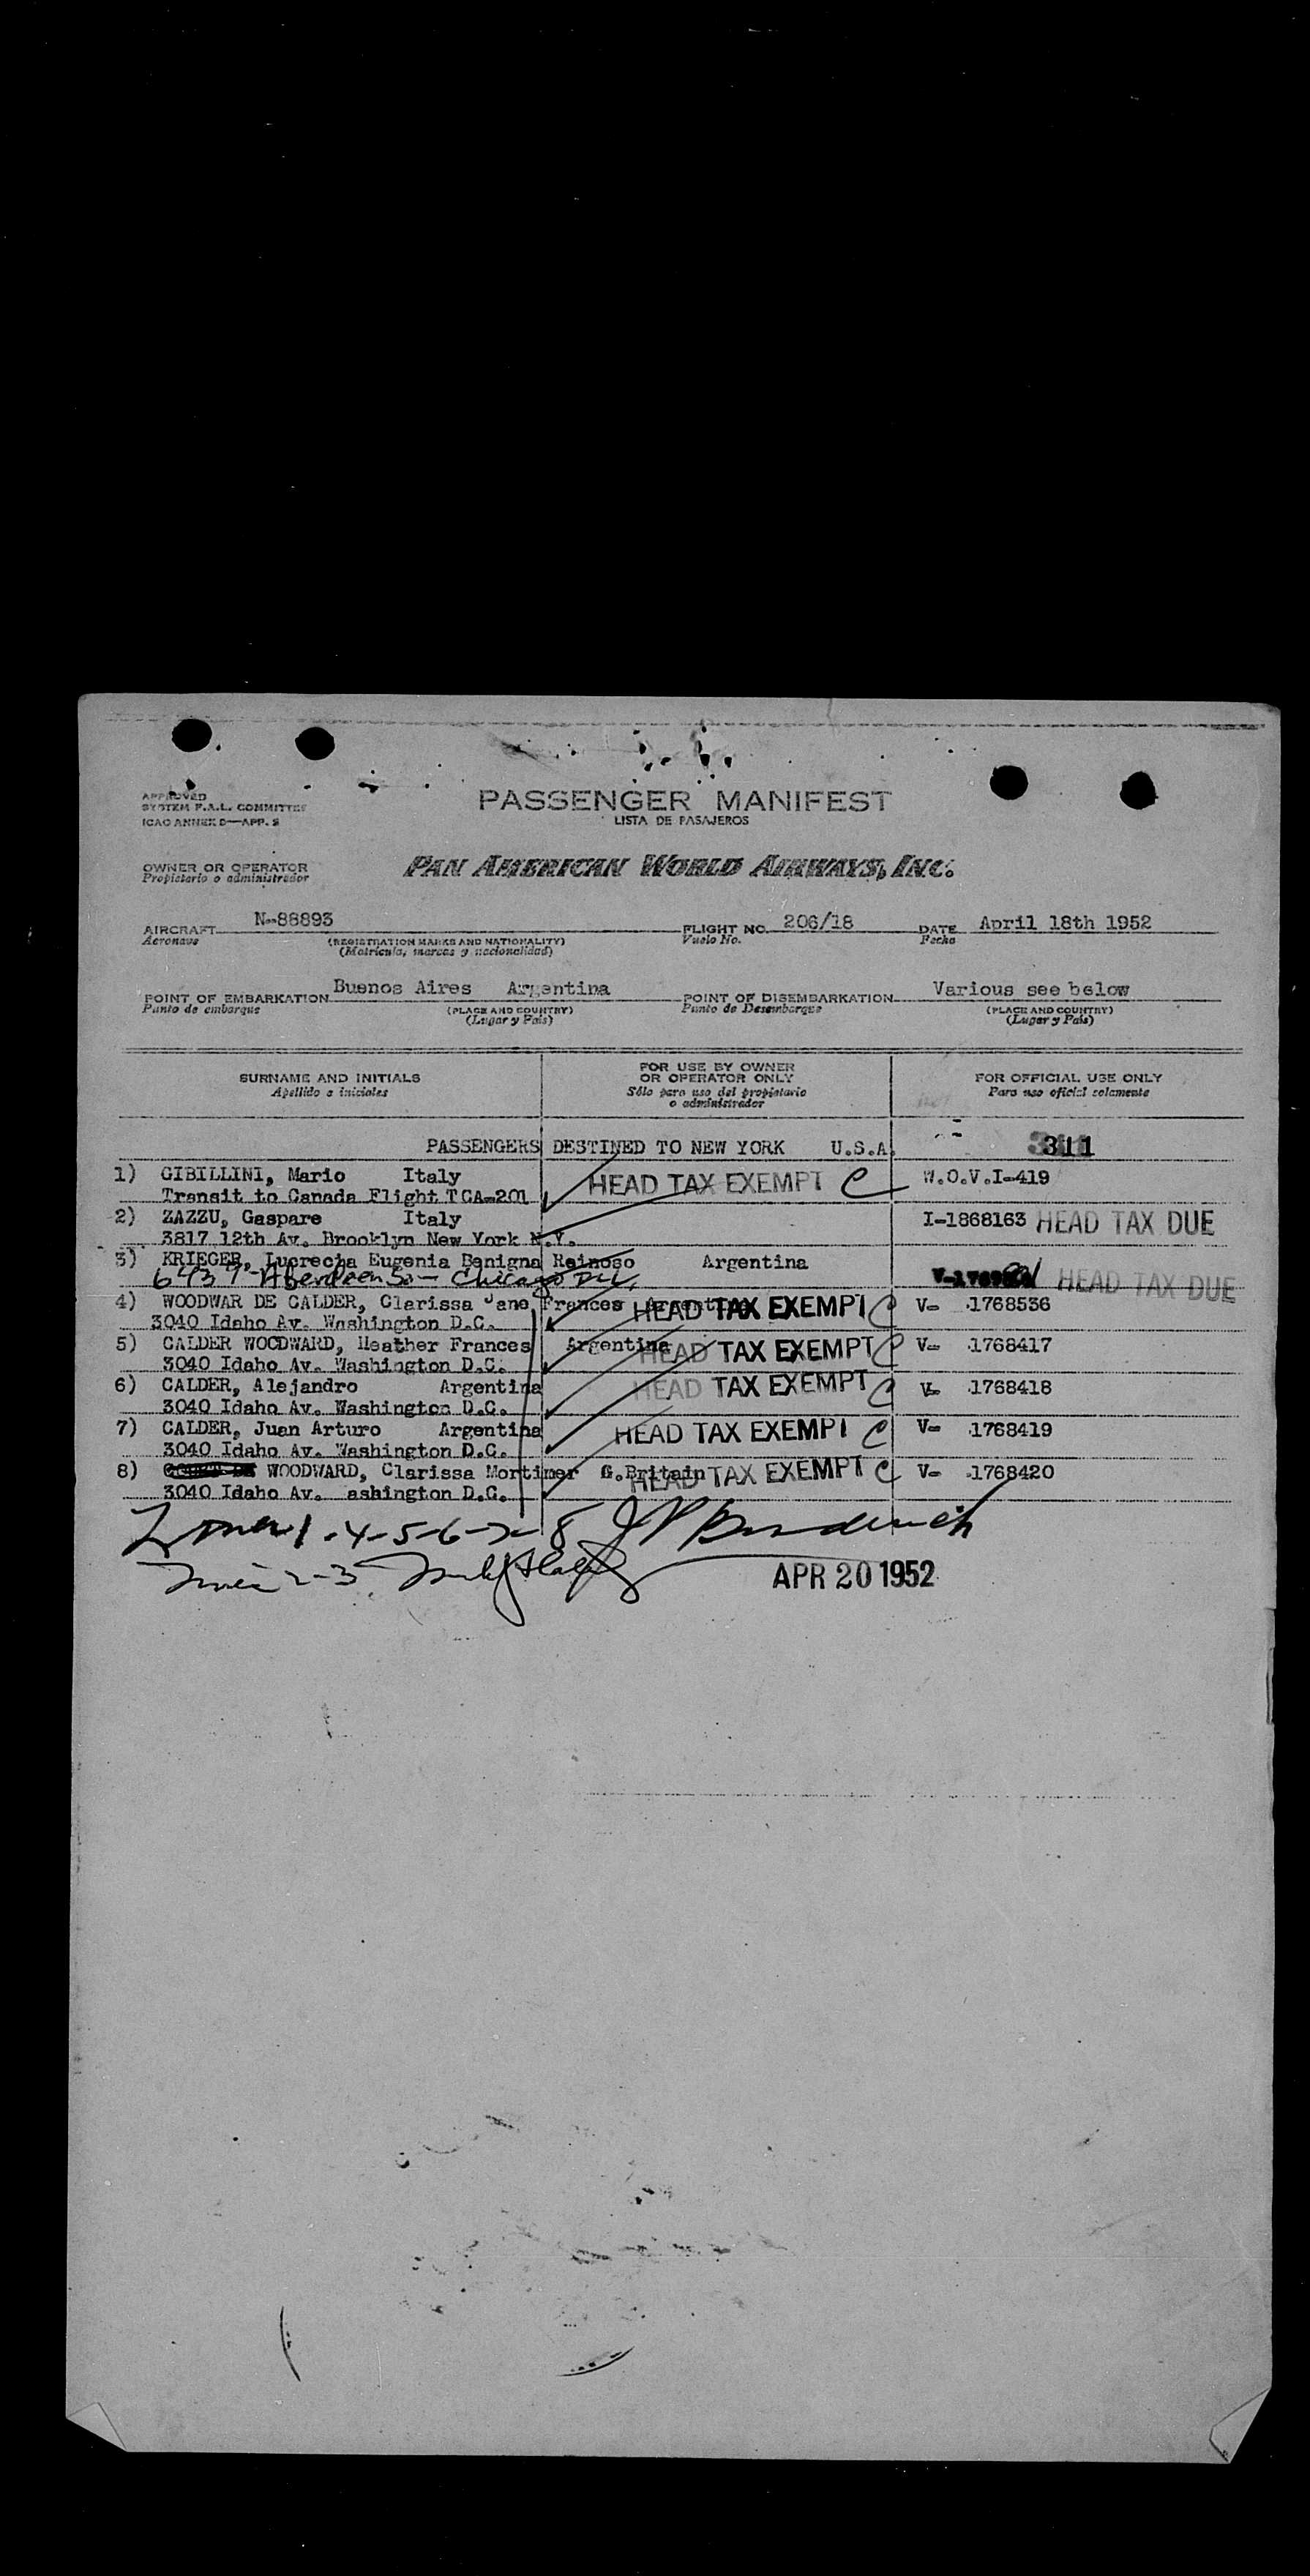 APPROVED
SYSTEM F.A.L. COMMITTEE
ICAO ANNEX 9—APP. 2
PASSENGER MANIFEST
LISTA DE PASAJEROS
OWNER OR OPERATOR
Propietario o administrador
PAN AMERICAN WORLD AIRWAYS, INC.
AIRCRAFT N-88893 FLIGHT NO. 206/18 DATE April 18th 1952
Aeronave (REGISTRATION MARKS AND NATIONALITY) Vuelo No. Fecha
(Matrícula, marcas y nacionalidad)
POINT OF EMBARKATION Buenos Aires Argentina POINT OF DISEMBARKATION Various see below
Punto de embarque (PLACE AND COUNTRY) Punto de Desembarque (PLACE AND COUNTRY)
(Lugar y País) (Lugar y País)
SURNAME AND INITIALS FOR USE BY OWNER OR OPERATOR ONLY FOR OFFICIAL USE ONLY
Apellido e iniciales Sólo para uso del propietario o administrador Para uso oficial solamente
PASSENGERS DESTINED TO NEW YORK U.S.A. 311
1) GIBILLINI, Mario Italy HEAD TAX EXEMPT C W.O.V.I-419
Transit to Canada Flight TCA-201
2) ZAZZU, Gaspare Italy I-1868163 HEAD TAX DUE
3817 12th Av. Brooklyn New York N.Y.
3) KRIEGER, Lucrecia Eugenia Benigna Reinoso Argentina HEAD TAX DUE
Aberdeen So — Chicago
4) WOODWAR DE CALDER, Clarissa Jane Frances Argentina HEAD TAX EXEMPT C V- 1768536
3040 Idaho Av. Washington D.C.
5) CALDER WOODWARD, Heather Frances Argentina HEAD TAX EXEMPT C V- 1768417
3040 Idaho Av. Washington D.C.
6) CALDER, Alejandro Argentina HEAD TAX EXEMPT C V- 1768418
3040 Idaho Av. Washington D.C.
7) CALDER, Juan Arturo Argentina HEAD TAX EXEMPT C V- 1768419
3040 Idaho Av. Washington D.C.
8) WOODWARD, Clarissa Mortimer G.Britain HEAD TAX EXEMPT C V- 1768420
3040 Idaho Av. ashington D.C.
1-4-5-6-7-8
2-3
APR 20 1952